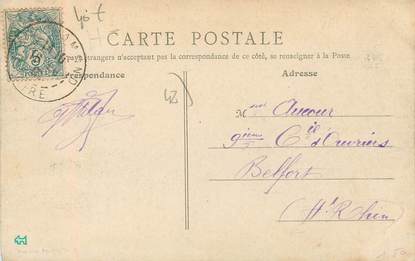 CARTE POSTALE
pays étrangers n'acceptant pas la correspondance de ce côté, se renseigner à la Poste
Correspondance
Adresse
42
M
Aucour
9ième Cie d'Ouvriers
Belfort
(Ht Rhin)